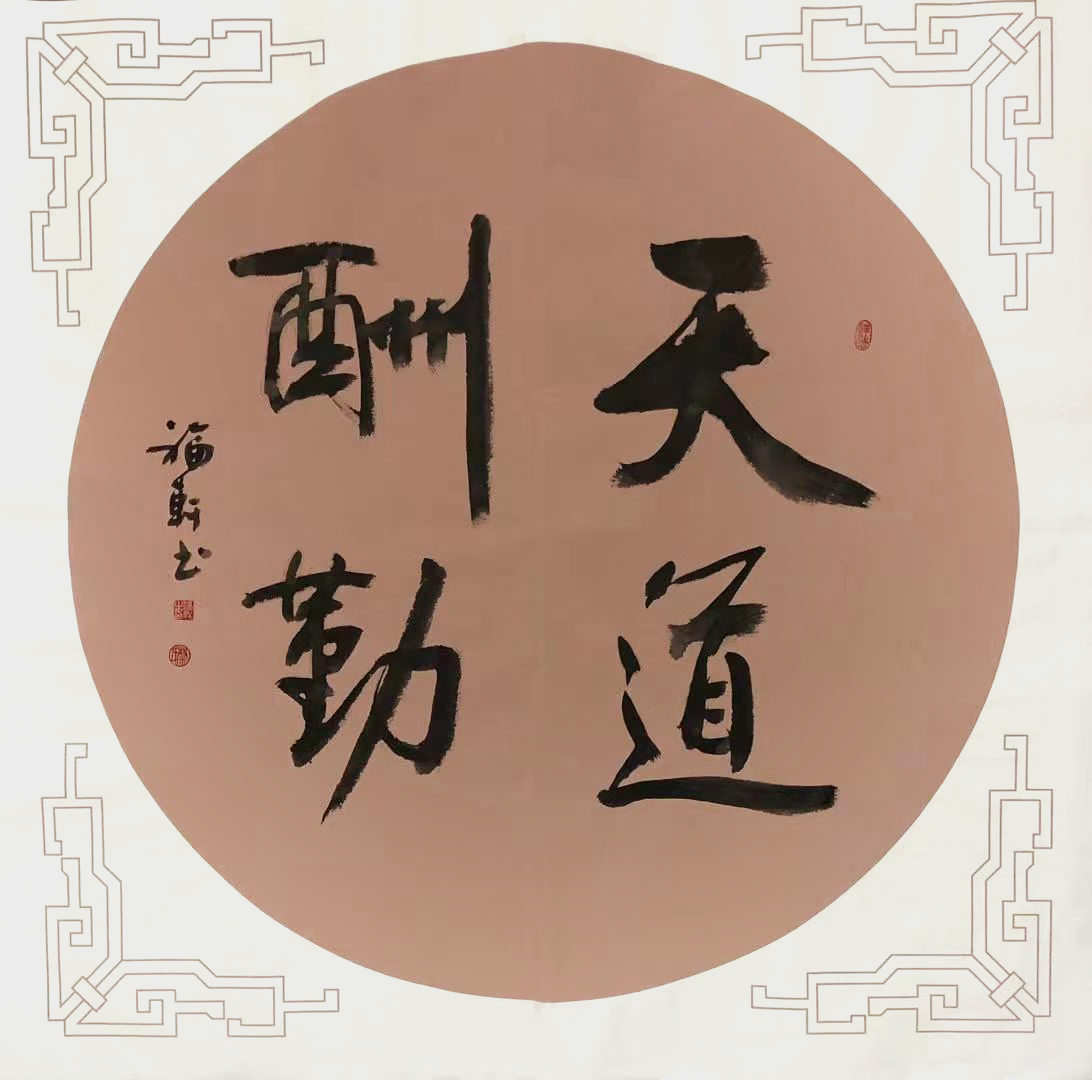 天道
酬勤
福軒书